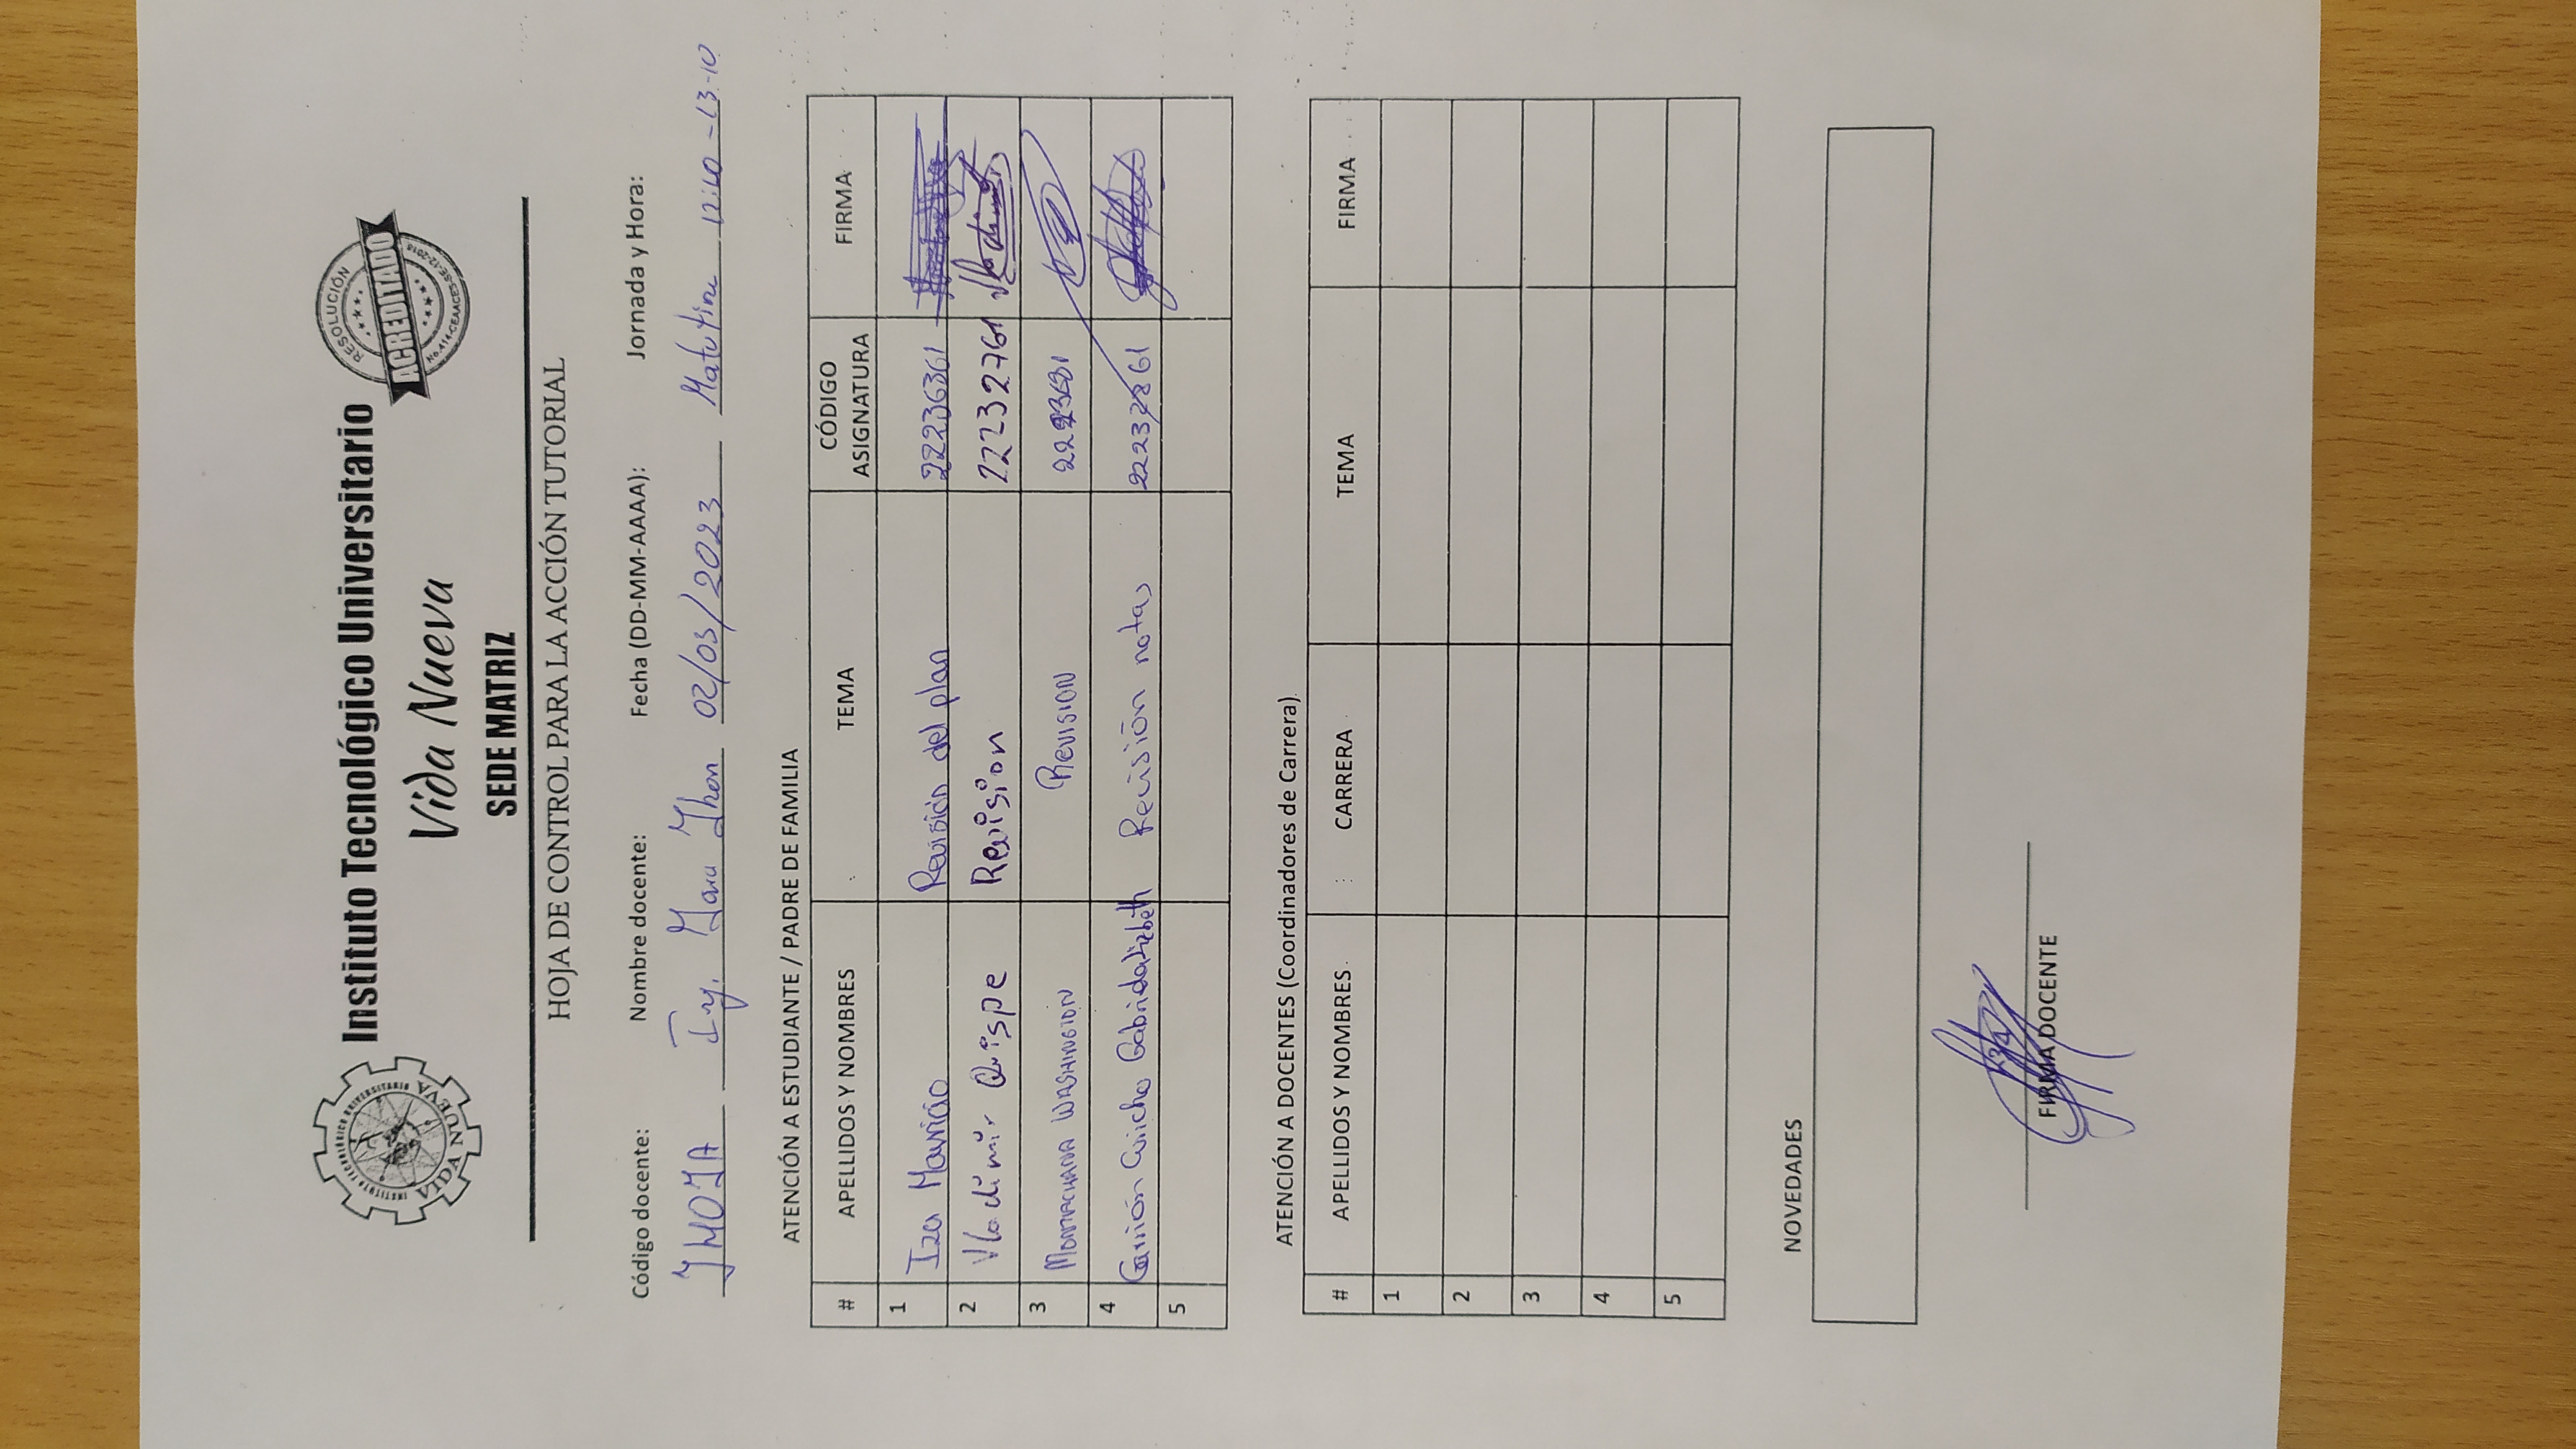 Instituto Tecnológico Universitario
Vida Nueva
SEDE MATRIZ
INSTITUTO TECNOLÓGICO UNIVERSITARIO
VIDA NUEVA
RESOLUCIÓN
ACREDITADO
No.414-CEAACES-SE-12-2018
HOJA DE CONTROL PARA LA ACCIÓN TUTORIAL
Código docente: Nombre docente: Fecha (DD-MM-AAAA): Jornada y Hora:
Ing. Jhon 02/03/2023 Matutina -13:10
ATENCIÓN A ESTUDIANTE / PADRE DE FAMILIA
# APELLIDOS Y NOMBRES TEMA CÓDIGO ASIGNATURA FIRMA
1 Iza Mauricio Revisión del plan 22236361
2 Vladimir Quispe Revision 22232761 Vladimir
3 WASHINGTON REVISION
4 Carrión Cuicho Gabriela Lizbeth Revisión notas
5
ATENCIÓN A DOCENTES (Coordinadores de Carrera)
# APELLIDOS Y NOMBRES CARRERA TEMA FIRMA
1
2
3
4
5
NOVEDADES
FIRMA DOCENTE